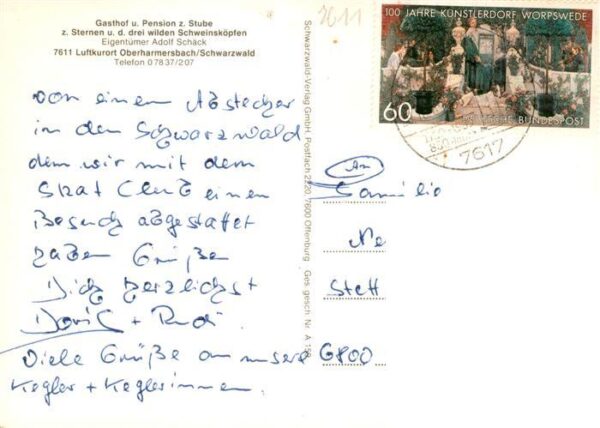 Gasthof u. Pension z. Stube
z. Sternen u. d. drei wilden Schweinsköpfen
Eigentümer Adolf Schäck
7611 Luftkurort Oberharmersbach/Schwarzwald
Telefon 0 78 37/2 07
von einem Abstecher
in den Schwarzwald
dem wir mit dem
Skat Club einen
Besuch abgestattet
haben Grüßen
Dich herzlichst
Doris + Rudi
Viele Grüße an unsere
Kegler + Keglerinnen.
Schwarzwald-Verlag GmbH, Postfach 2220, 7600 Offenburg · Ges. gesch. Nr. A
7611
100 JAHRE KÜNSTLERDORF WORPSWEDE
60
DEUTSCHE BUNDESPOST
7617
An
Familie
Ne
Stett
6800